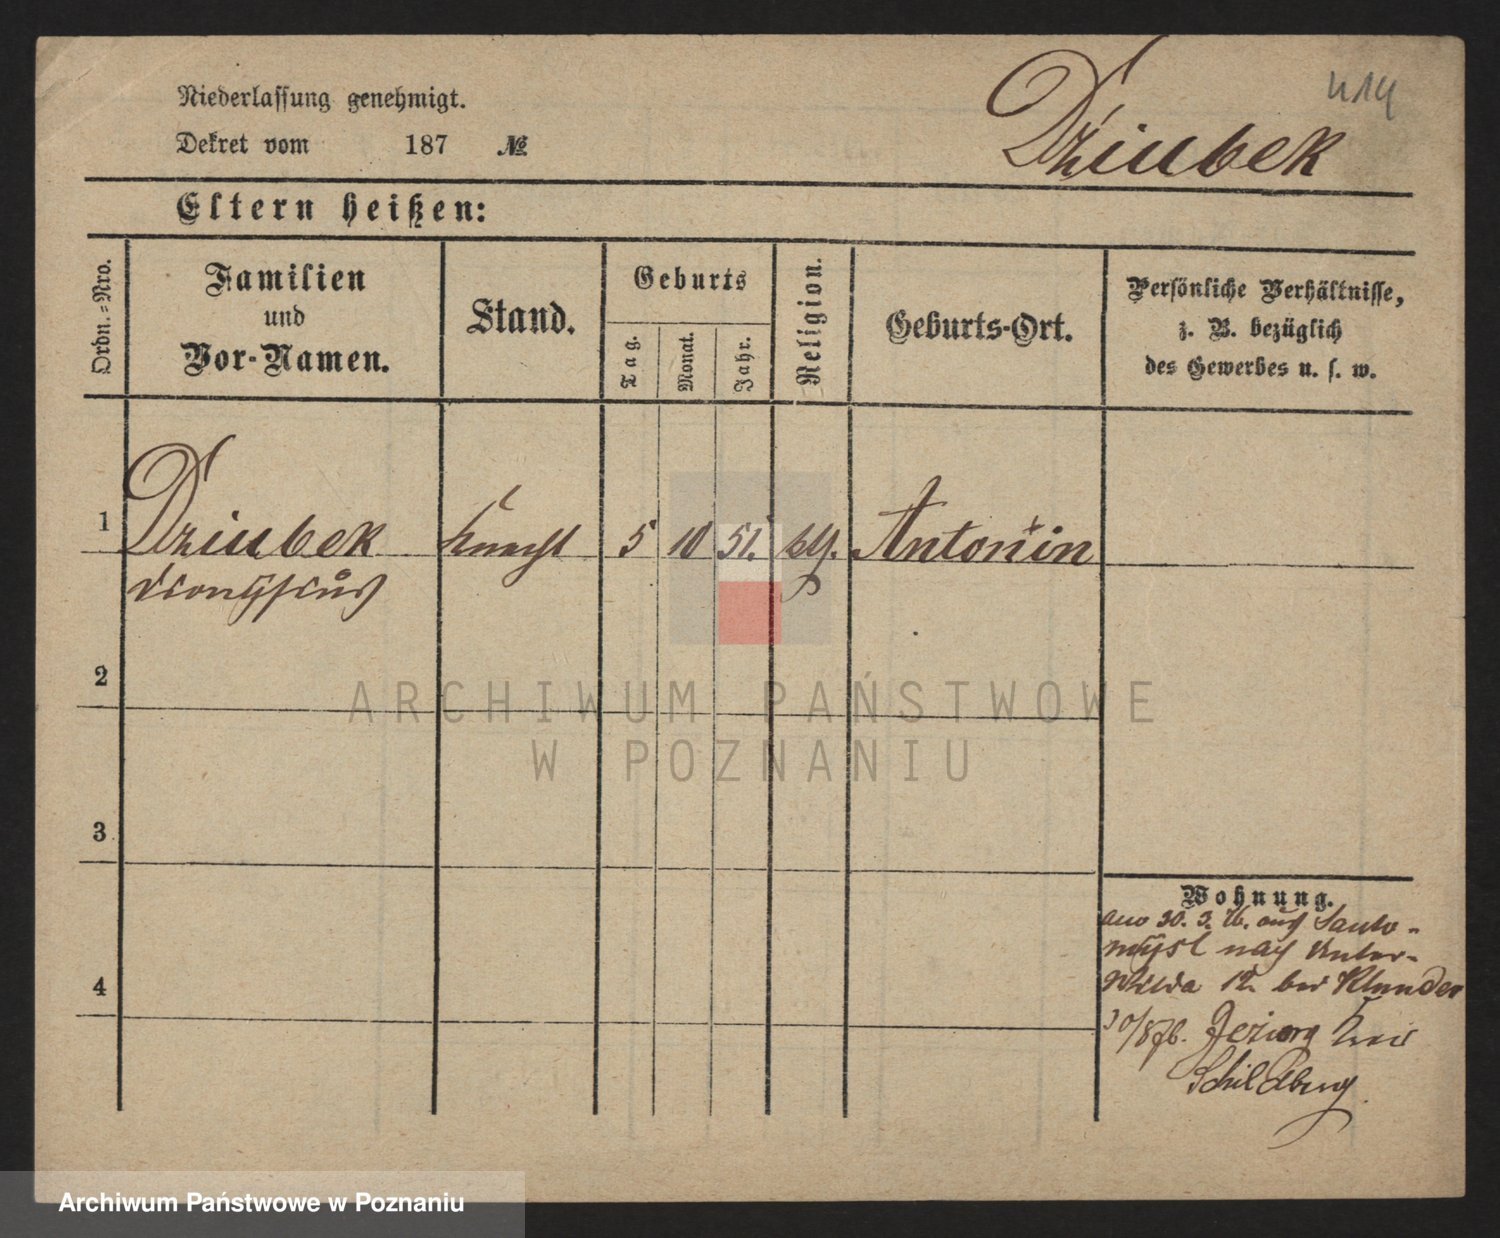 Niederlassung genehmigt.
414
Dekret vom 187 №
Dziubek
Eltern heißen:
Ordn.-Nro.
Familien
und
Vor-Namen.
Stand.
Geburts
Tag.
Monat.
Jahr.
Religion.
Geburts-Ort.
Persönliche Verhältnisse,
z. B. bezüglich
des Gewerbes u. s. w.
1
Dziubek
Knecht
5
10
51.
kth.
Antonin
Dionysius
2
ARCHIWUM PAŃSTWOWE
W POZNANIU
3
Wohnung.
30. 3. 76. aus Santo-
mysl nach Unter-
wilda 12 bei Klunder
4
30/8 76. Jeziora Kreis
Schildberg
Archiwum Państwowe w Poznaniu